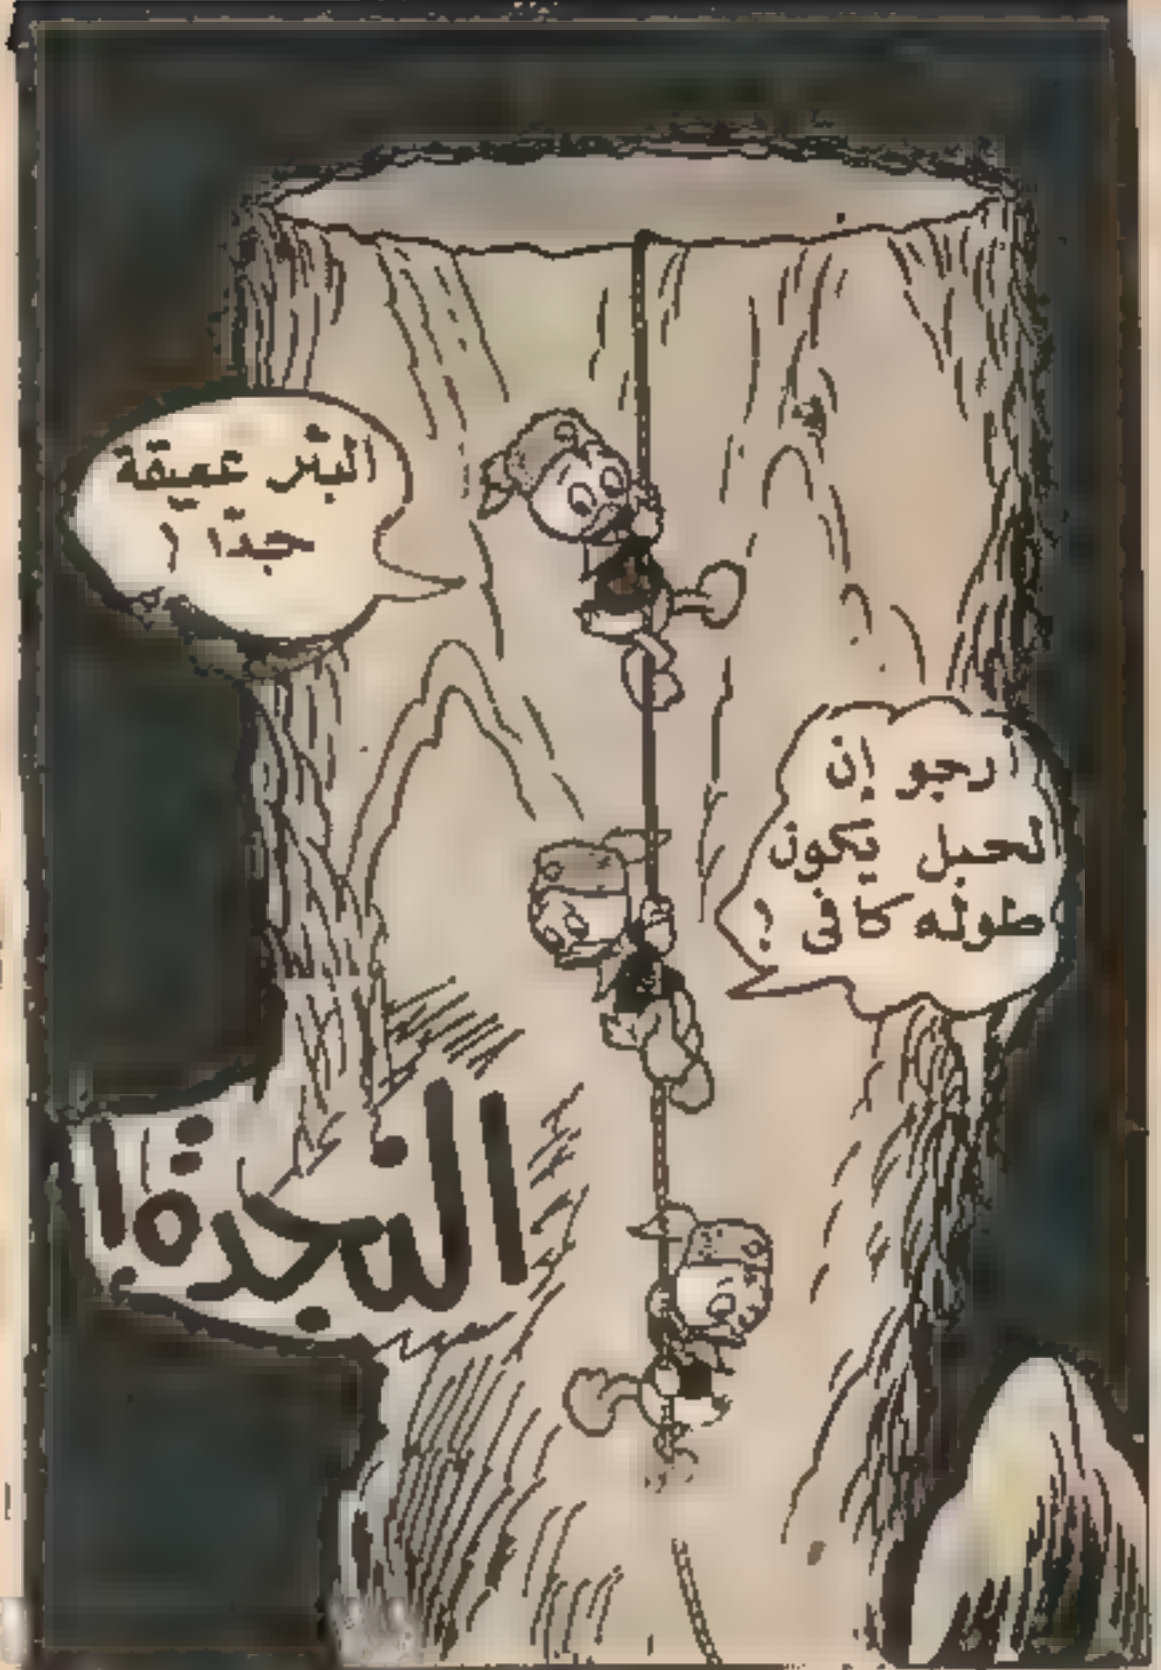 البئر عميقة
جدّا !
نرجو إن
لحبل يكون
طوله كافى ؟
النجدة!